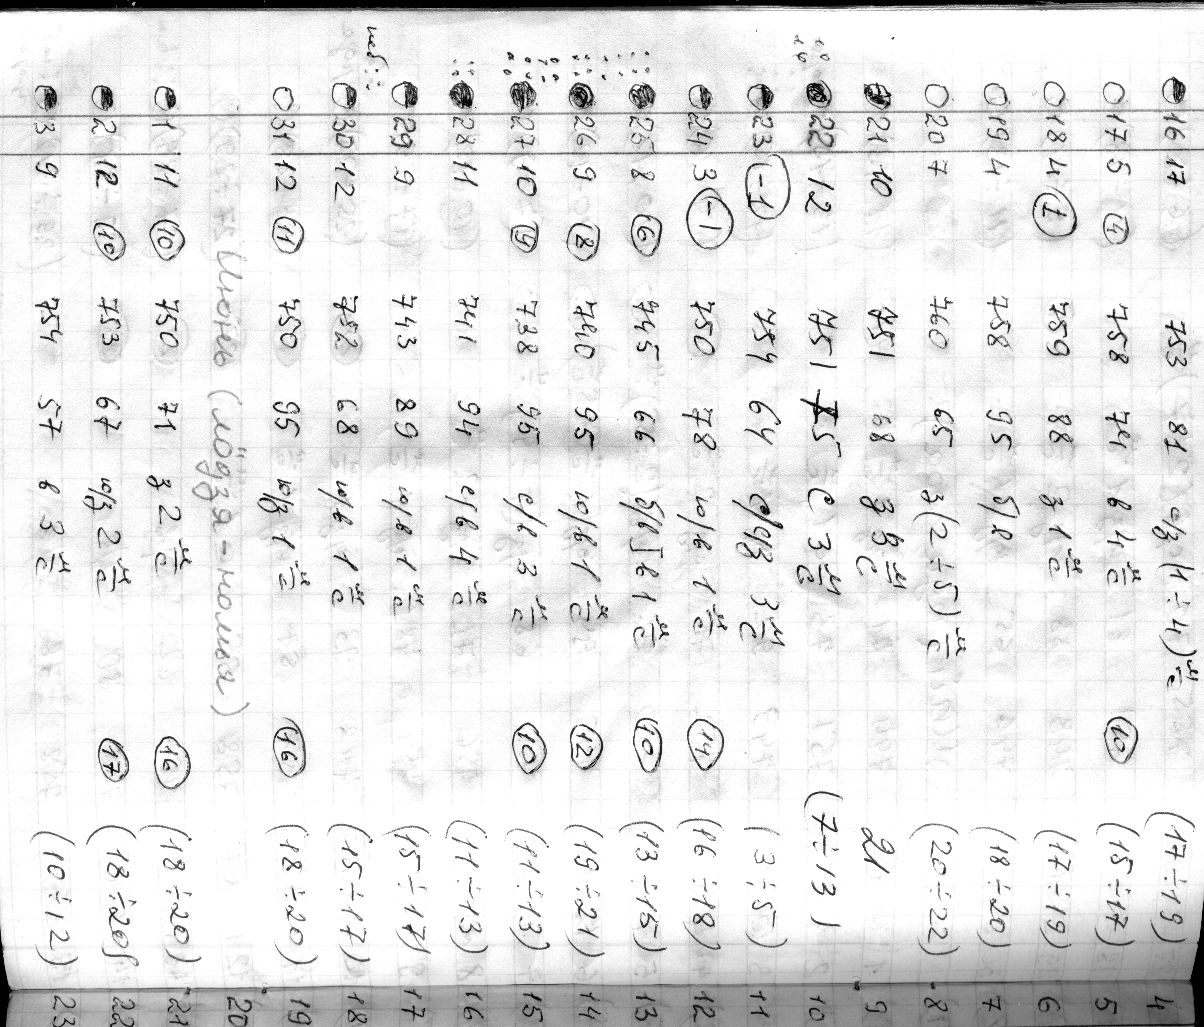 16 17 753 81 с/з (1÷4) м/с (17÷19) 4
17 5 (4) 758 74 в 4 м/с (10) (15÷17) 5
18 4 (1) 759 88 з 1 м/с (17÷19) 6
19 4 758 95 б/в (18÷20) 7
20 7 760 65 з (2÷5) м/с (20÷22) 8
21 10 751 68 з 3 м/с 21 9
22 12 751 75 с 3 м/с (7÷13) 10
23 (-1) 754 64 с/з 3 м/с (3÷5) 11
24 3 (-1) 750 78 ю/в 1 м/с (14) (16÷18) 12
25 8 (6) 745 66 б/в в 1 м/с (10) (13÷15) 13
26 9 (8) 740 95 ю/в 1 м/с (12) (19÷21) 14
27 10 (9) 738 95 с/в 3 м/с (10) (11÷13) 15
28 11 741 94 с/в 4 м/с (11÷13) 16
29 9 743 89 ю/в 1 м/с (15÷17) 17
30 12 752 68 ю/в 1 м/с (15÷17) 18
31 12 (11) 750 95 ю/з 1 м/с (16) (18÷20) 19
Июнь (лöдзя-номъя) 20
1 11 (10) 750 71 з 2 м/с (16) (18÷20) 21
2 12 (10) 753 67 ю/з 2 м/с (17) (18÷20) 22
3 9 754 57 в 3 м/с (10÷12) 23